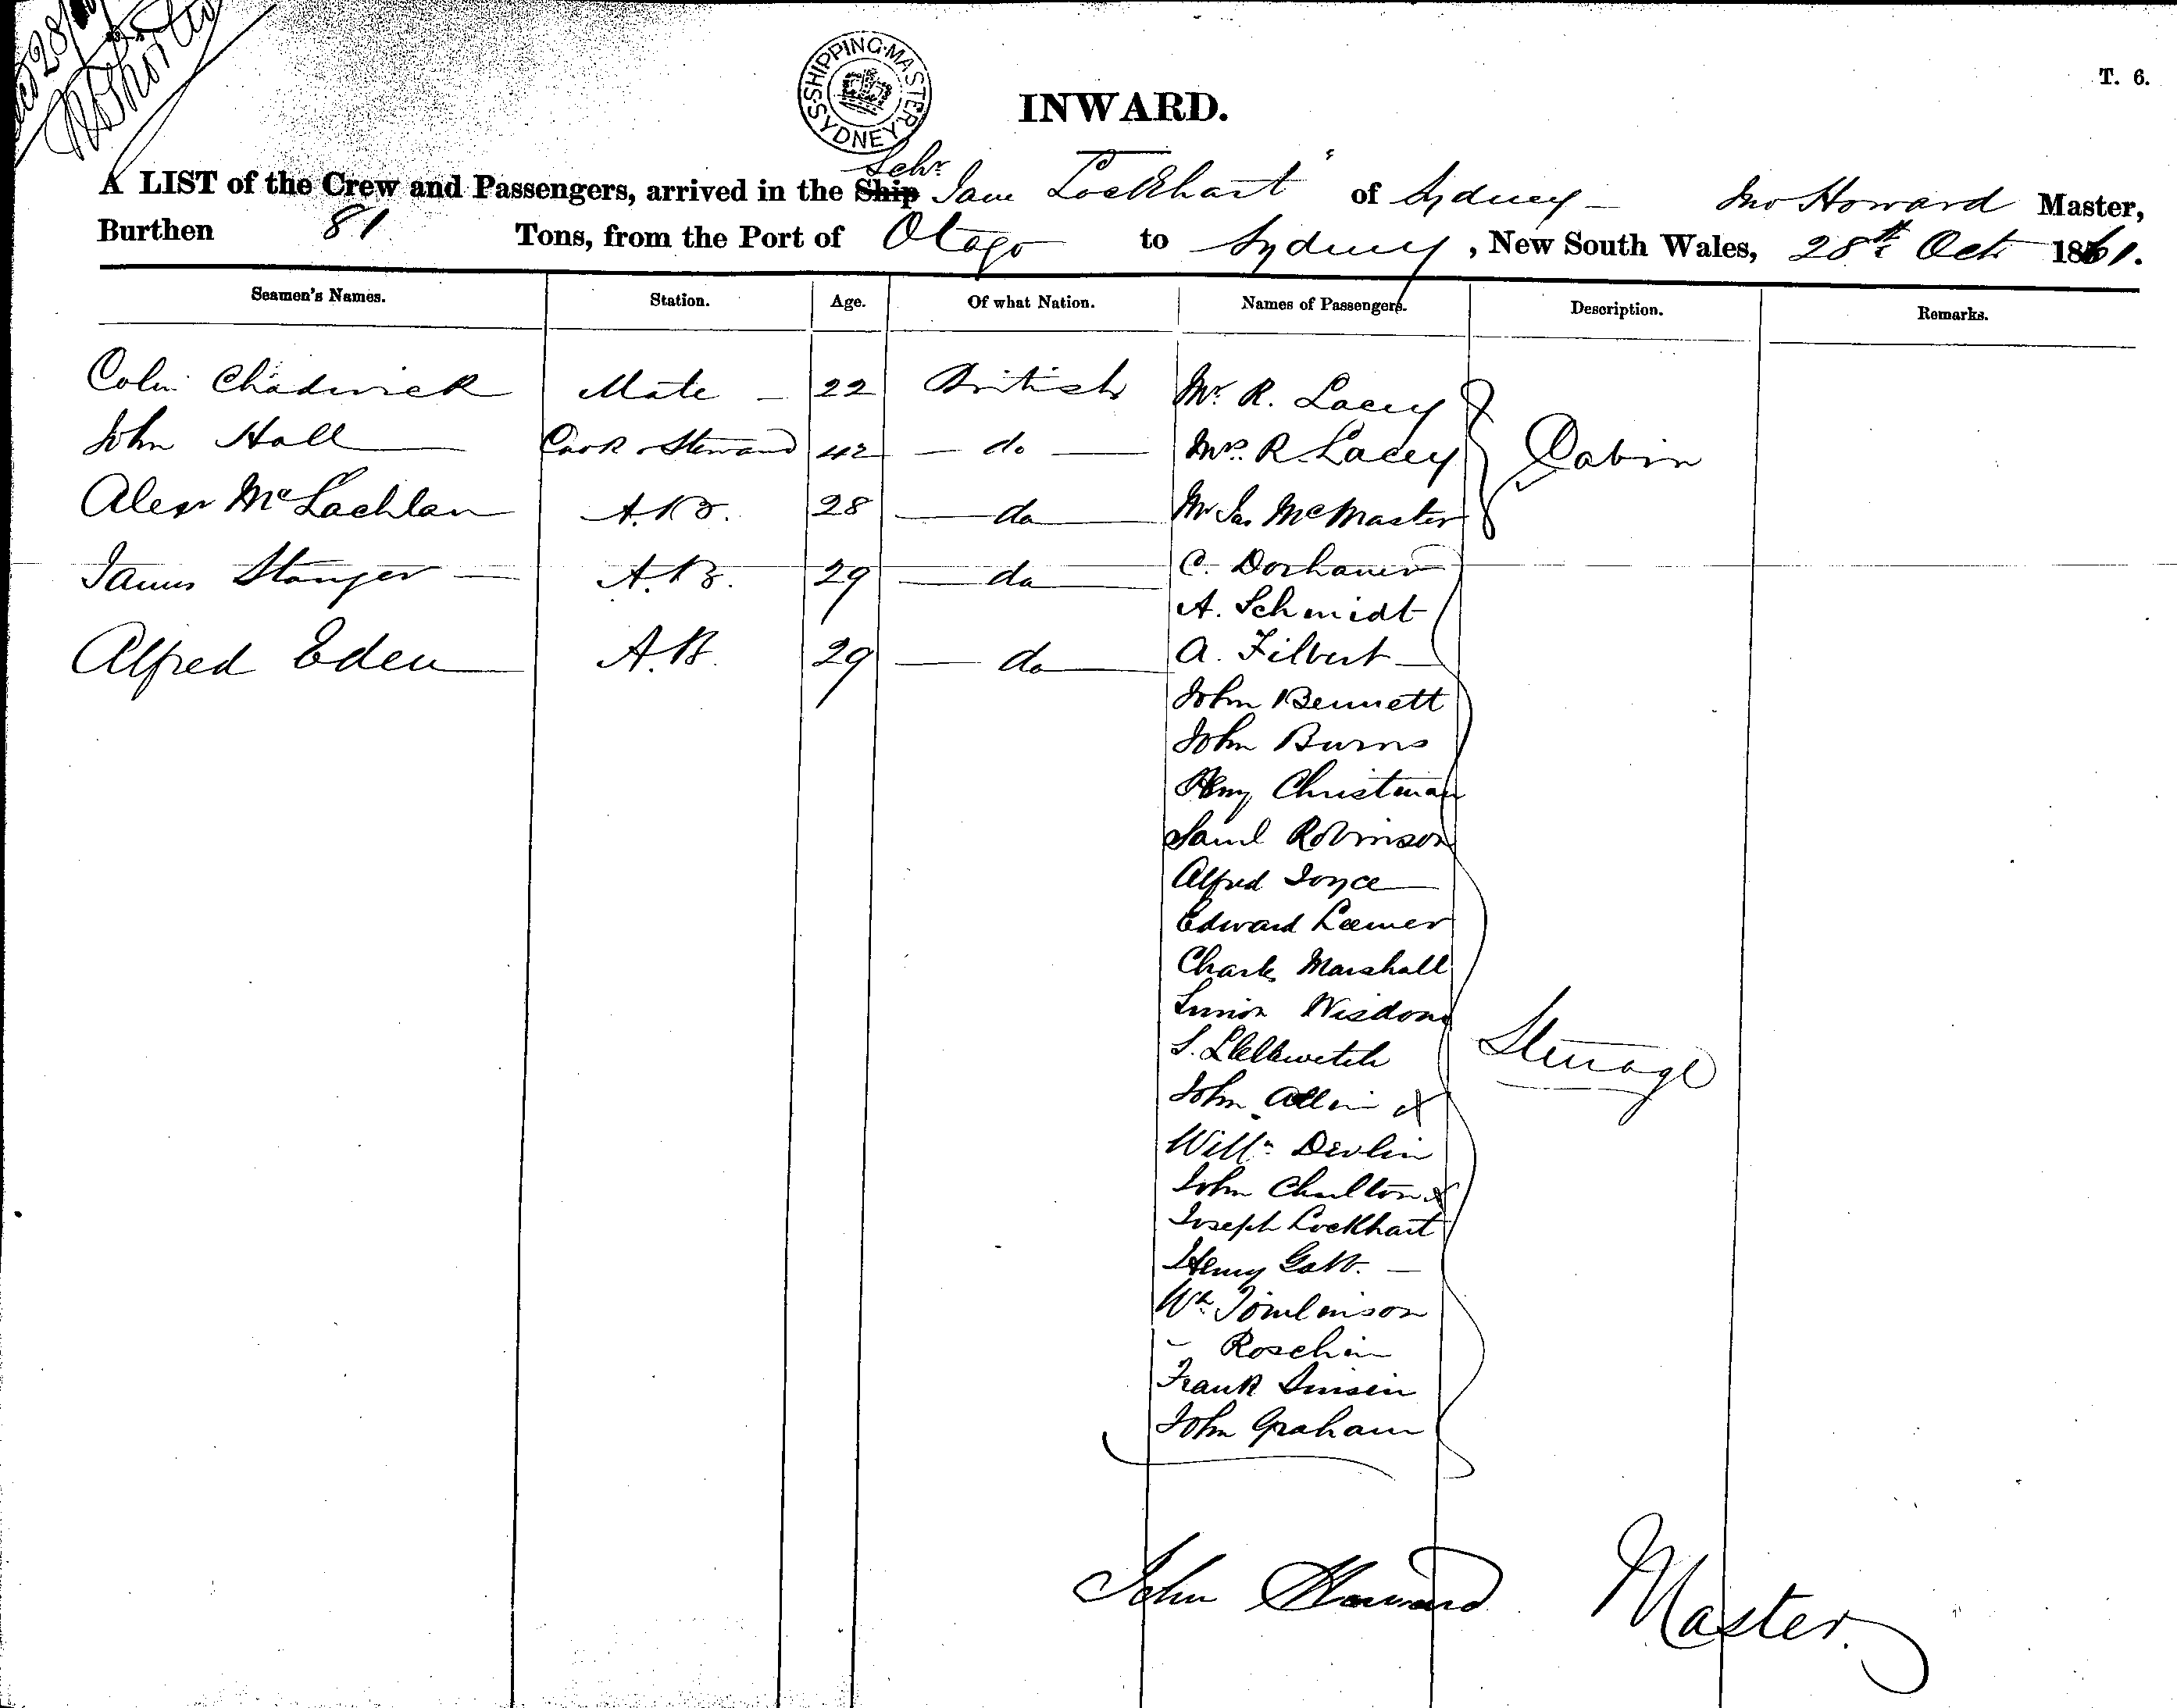 T. 6.
SHIPPING MASTER SYDNEY
INWARD.
Schr.
A LIST of the Crew and Passengers, arrived in the Ship Jane Lockhart" of Sydney — Jno Howard Master,
Burthen 81 Tons, from the Port of Otago to Sydney, New South Wales, 28th Oct 1861.
Seamen's Names. Station. Age. Of what Nation. Names of Passengers. Description. Remarks.
Colin Chadwick Mate — 22 British Mr. R. Lacey
John Hall Cook & Steward 42 — do — Mrs. R Lacey Cabin
Alexr McLachlan A.B. 28 — do — Mr Jas McMaster
James Stanger — A.B. 29 — do — C.
A. Schmidt
Alfred Eden A.B. 29 — do — A. Filbert —
John Bennett
John Burns
Heny Christman
Saml Robinson
Alfred Joyce
Edward Leemer
Charles Marshall
Wisdom
S. Steerage
John Allen x
Willm Devlin
John Charlton x
Joseph Lockhart
Henry —
Wm Tomlinson
–
Frank
John Graham
John Howard Master.